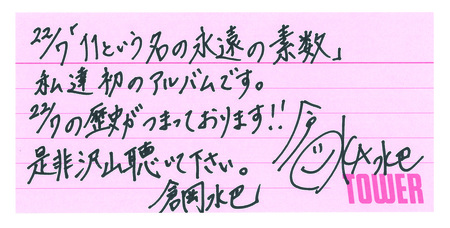 22/7「11という名の永遠の素数」
私達初のアルバムです。
22/7の歴史がつまっております!!
是非沢山聴いて下さい。
倉岡水巴
水巴
TOWER